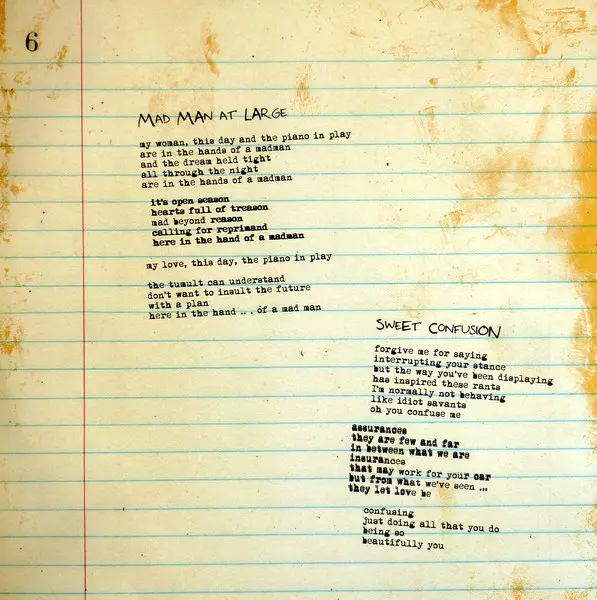 6
MAD MAN AT LARGE
my woman, this day and the piano in play
are in the hands of a madman
and the dream held tight
all through the night
are in the hands of a madman
it's open season
hearts full of treason
mad beyond reason
calling for reprimand
here in the hand of a madman
my love, this day, the piano in play
the tumult can understand
don't want to insult the future
with a plan
here in the hand ... of a mad man
SWEET CONFUSION
forgive me for saying
interrupting your stance
but the way you've been displaying
has inspired these rants
I'm normally not behaving
like idiot savants
oh you confuse me
assurances
they are few and far
in between what we are
insurances
that may work for your car
but from what we've seen ...
they let love be
confusing
just doing all that you do
being so
beautifully you